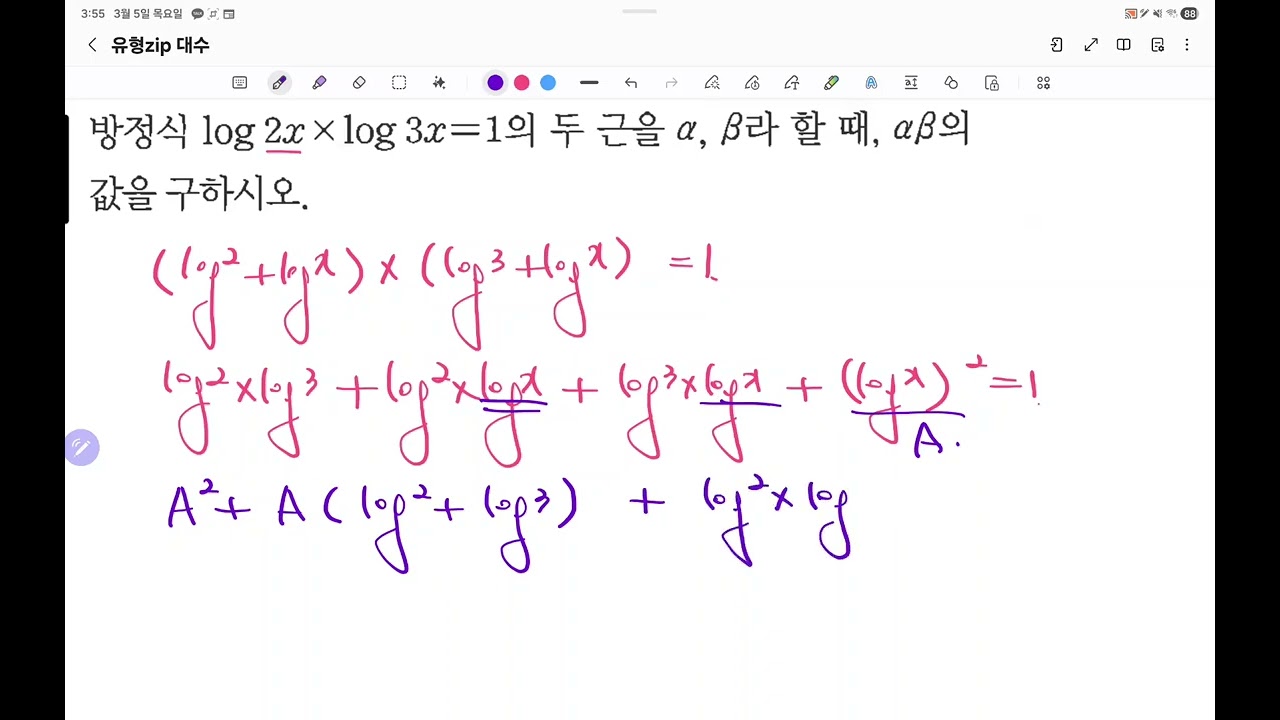 3:55 3월 5일 목요일 88
유형zip 대수
방정식 log 2x × log 3x = 1의 두 근을 α, β라 할 때, αβ의
값을 구하시오.
(log2 + logx) × (log3 + logx) = 1
log2 × log3 + log2 × logx + log3 × logx + (logx)² = 1
A
A² + A (log2 + log3) + log2 × log